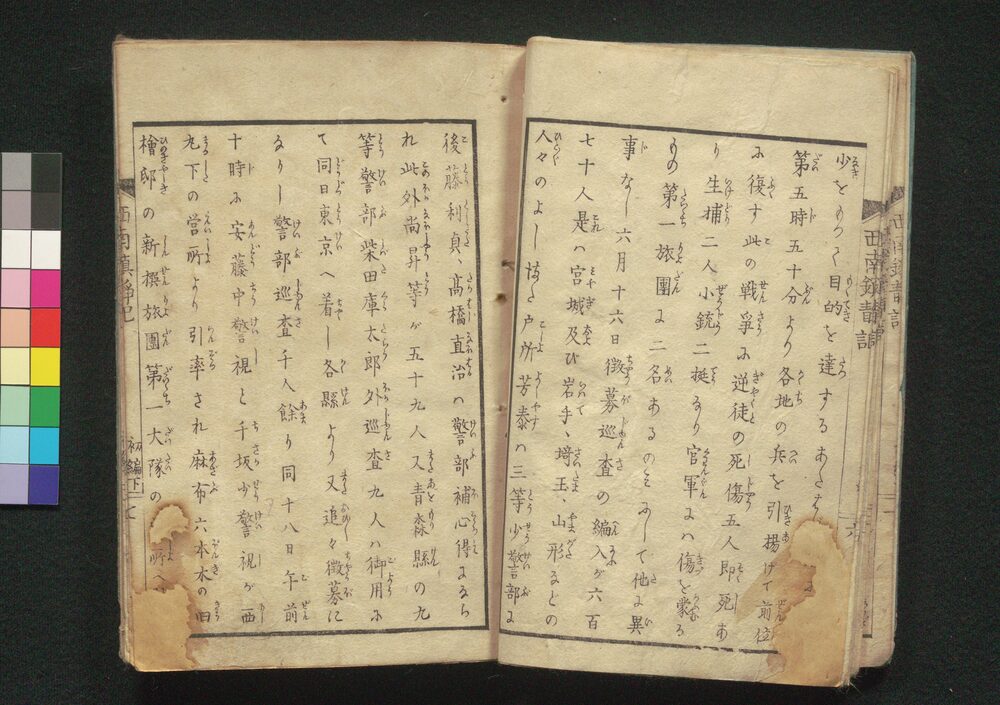 少をのみて目的を達するあたは
第五時五十分より各地の兵を引揚げて前位
に復す此の戦爭に逆徒の死傷五人即死あ
り生捕二人小銃二挺なり官軍には傷を蒙る
もの第一旅團に二名あるのみにして他に異
事なし六月十六日徴募巡査の編入が六百
七十人是は宮城及び岩手、埼玉、山形などの
人々のよし又戸所芳泰は三等少警部に
後藤利貞、髙橋直治は警部補心得になら
れ此外尚昇等が五十九人又青森縣の九
等警部柴田庫太郎外巡査九人は御用に
て同日東京へ着し各縣より又追々徴募に
なりし警部巡査千人餘り同十八日午前
十時に安藤中警視と千坂少警視が西
丸下の営所より引率され麻布六本木の田
檜邸の新撰旅團第一大隊の所へ
西南鎮静記
初編下